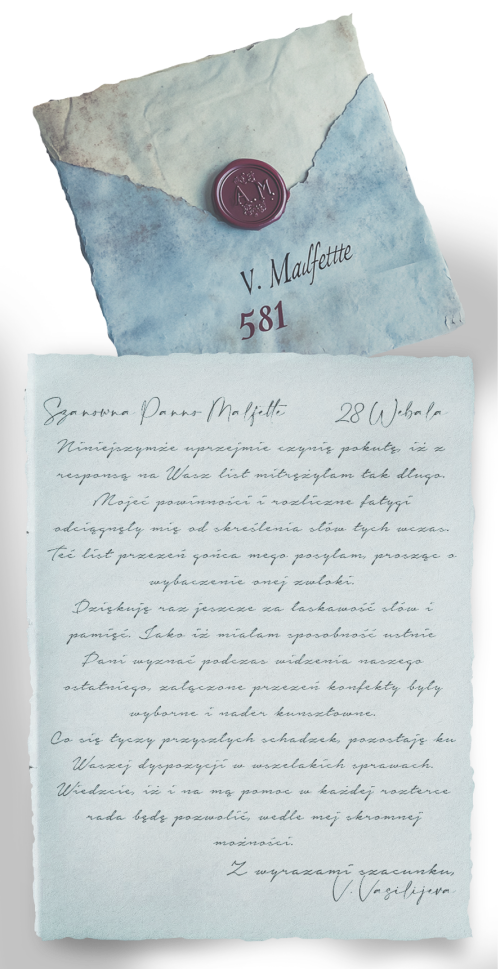 A.M.
V. Malfettte
581
Szanowna Panno Malfette 28 Webala
Niniejszymże uprzejmie czynię pokutę, iż z
responsą na Wasz list mitrężyłam tak długo.
Mojeć powinności i rozliczne fatygi
odciągnęły mię od skreślenia słów tych wczas.
Teć list przezeń gońca mego posyłam, prosząc o
wybaczenie onej zwłoki.
Dziękuję raz jeszcze za łaskawość słów i
pamięć. Jako iż miałam sposobność ustnie
Pani wyznać podczas widzenia naszego
ostatniego, załączone przezeń konfekty były
wyborne i nader kunsztowne.
Co się tyczy przyszłych schadzek, pozostaję ku
Waszej dyspozycji w wszelakich sprawach.
Wiedzcie, iż i na mą pomoc w każdej rozterce
rada będę pozwolić, wedle mej skromnej
możności.
Z wyrazami szacunku,
V. Vasilijeva